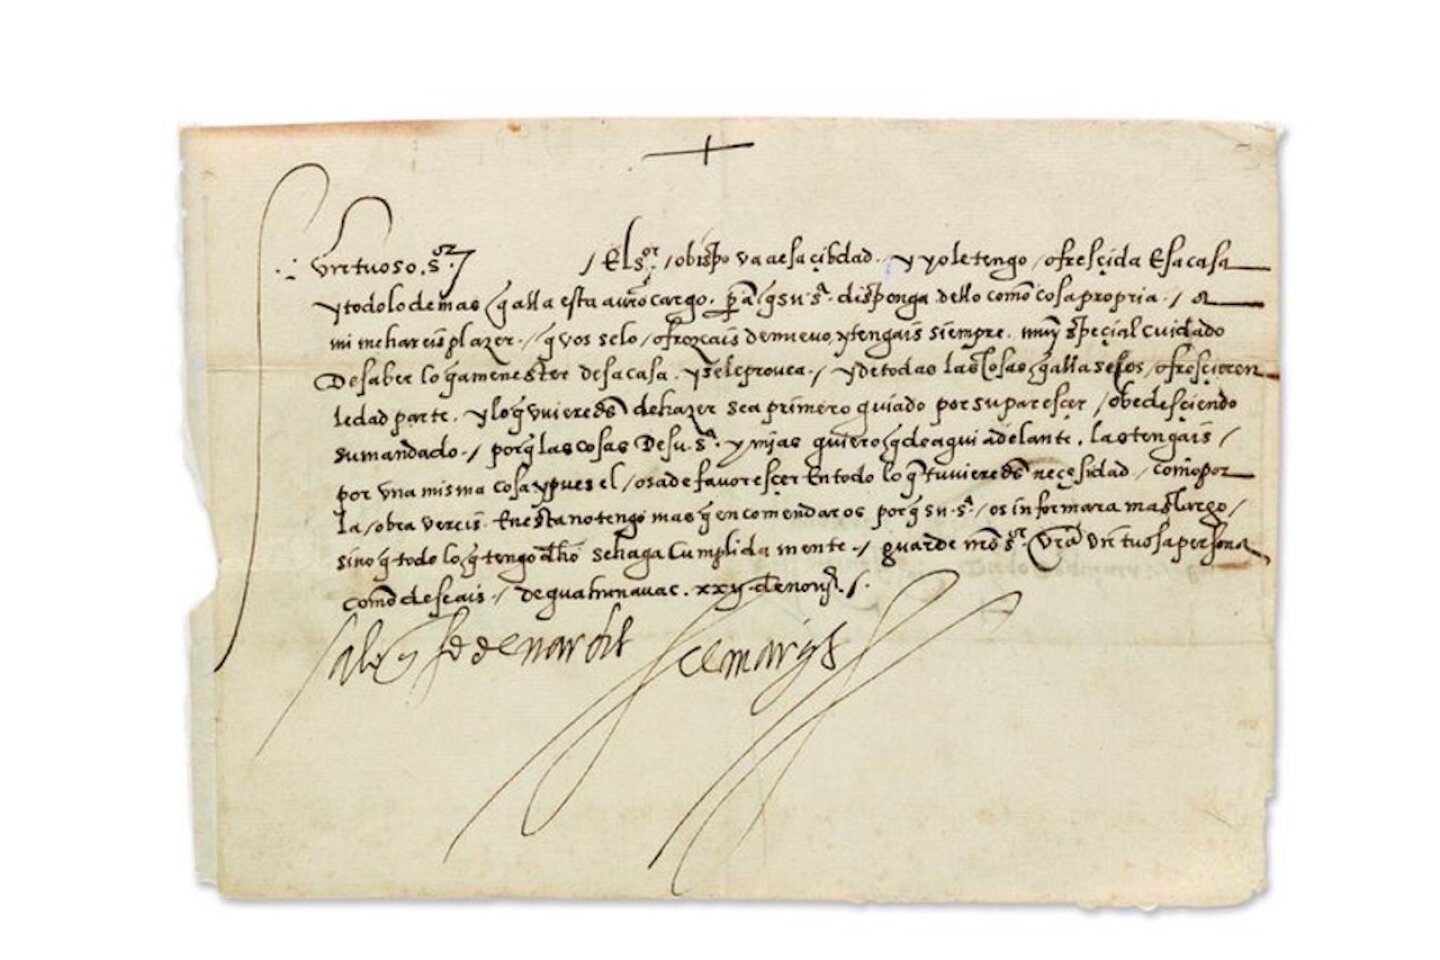 virtuoso. sor
/ El sor. / obispo va a esa çibdad. y yo le tengo / ofresçida Esa casa
y todo lo demas q̃ alla esta a vr̃o cargo. pa q̃ su sa. disponga dello como cosa propria. / a
mi me hareis plazer. / q̃ vos se lo / ofrezcais de nuevo, y tengais siempre. muy special cuidado
De saber lo q̃ a menester desa casa. y se le provea. / y de todas las cosas q̃ alla se / ofresçieren
le dad parte. y lo q̃ vuieredes de hazer sea primero guiado por su paresçer / obedesçiendo
su mandado. / porq̃ las cosas De su. sa. y mias quiero q̃ de aqui adelante. las tengais /
por vna misma cosa y pues el / os a de favoresçer En todo lo q̃ tuvieredes neçesidad / como por
la / obra vereis. En esta no tengo mas q̃ encomendaros porq̃ su. sa. / os informara mas largo /
sino q̃ todo lo q̃ tengo dho se haga Cumplida mente. / guarde nr̃o sor vr̃a virtuosa persona
como deseais. / de quahunauac. xxv de nouẽ. /.
el marqs